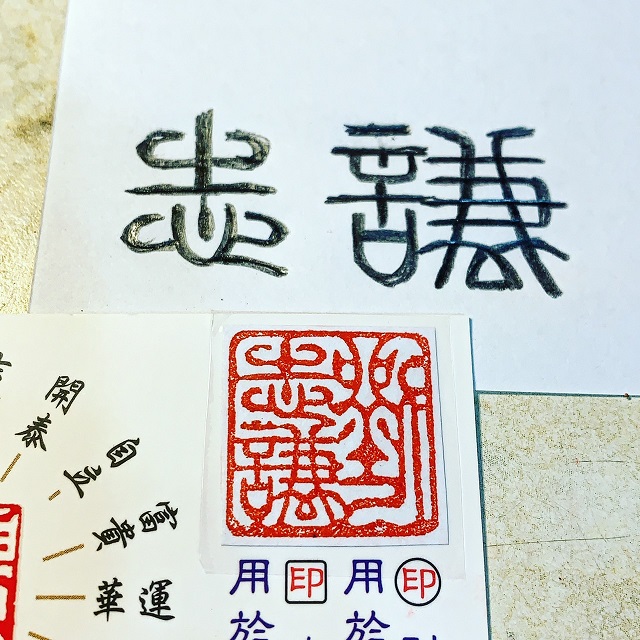 志謙
開泰
自立
富貴
華運
志謙
用印用印
於於